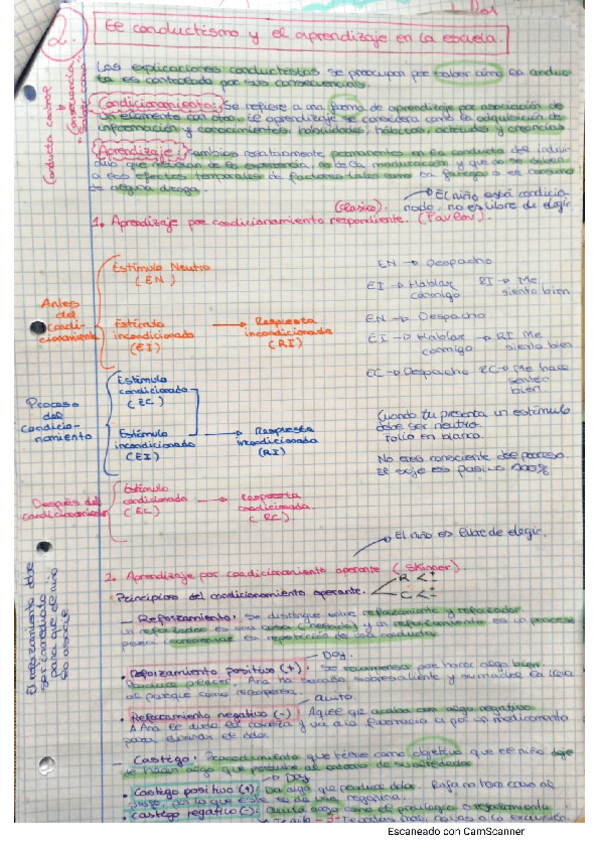 2.
El conductismo y el aprendizaje en la escuela.
Las explicaciones conductistas se preocupan por saber cómo la conduc-
ta es controlada por sus consecuencias.
Condicionamiento: Se refiere a una forma de aprendizaje por asociación de
un elemento con otro. El aprendizaje se considera como la adquisición de
información y conocimientos, habilidades, hábitos, actitudes y creencias.
Aprendizaje: cambios relativamente permanentes en la conducta del indivi-
duo que no de la maduración y que no se deben
a los efectos temporales de factores tales como la fatiga o el consumo
de alguna droga.
Conducta control
consecuencia
El niño está condicio-
nado, no es libre de elegir
(clásico).
1. Aprendizaje por condicionamiento respondiente. (Pavlov).
Antes
del
condi-
cionamiento
Estímulo Neutro
(EN)
Estímulo
incondicionado
(EI)
Respuesta
incondicionada
(RI)
EN → Despacho
EI → Hablar conmigo RI → Me siento bien
EN → Despacho
EI → Hablar conmigo → RI Me siento bien
EC → Despacho RC → Me hace sentir bien
Proceso
del
Condicio-
namiento
Estímulo
condicionado
(EC)
Estímulo
incondicionado
(EI)
Respuesta
incondicionada
(RI)
Cuando tu presenta un estímulo
debe ser neutro.
Folio en blanco.
No eres consciente del proceso.
El sujeto es pasivo 100%
Después del
condicionamiento
Estímulo
condicionado
(EC)
Respuesta
condicionada.
(RC)
El niño es libre de elegir.
2. Aprendizaje por condicionamiento operante (Skinner).
Principios del condicionamiento operante.
R < + -
C < + -
El reforzamiento debe
ser
para que el niño
lo asocie.
- Reforzamiento: Se distingue entre reforzamiento y reforzador
un reforzador es una cosa (estímulo) y un reforzamiento es un proceso
la repetición de una conducta.
Doy.
• Reforzamiento positivo (+): Se recompensa por hacer algo bien.
Produce placer. Ana ha sacado sobresaliente y su madre la lleva
al parque como recompensa.
Quito
• Reforzamiento negativo (-): Aquel que acaba con algo negativo
A Ana le duele la cabeza y va a la farmacia a por un medicamento
para eliminar el dolor.
- Castigo: Procedimiento que tiene como objetivo que el niño deje
de hacer algo
Doy
• Castigo positivo (+): Da algo que produce dolor. Rafa no hace caso al
• Castigo negativo (-): Quita algo
Escaneado con CamScanner